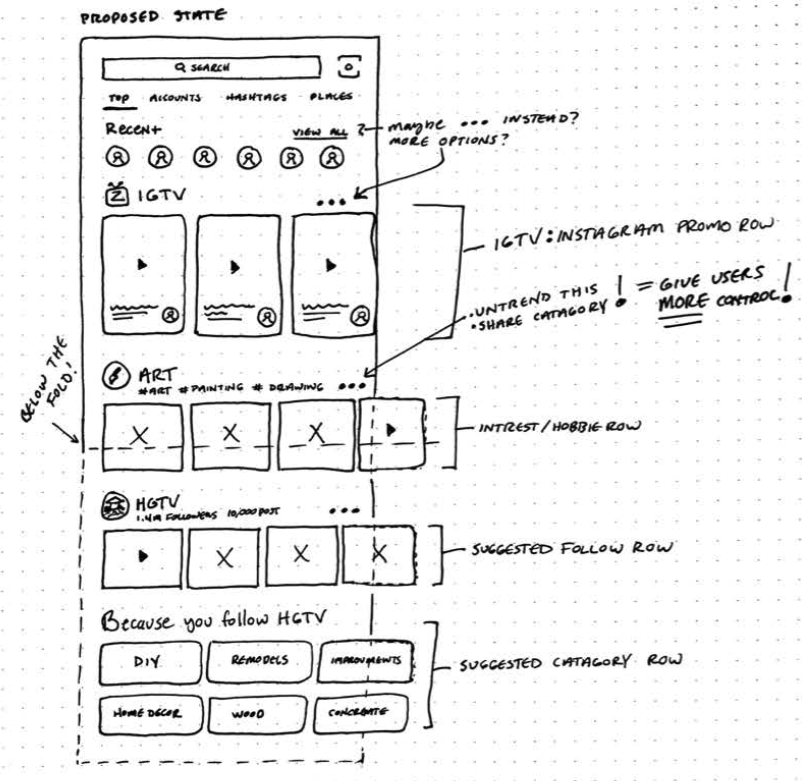 PROPOSED STATE
SEARCH
TOP ACCOUNTS HASHTAGS PLACES
Recent VIEW ALL
maybe ••• INSTEAD?
MORE OPTIONS?
IGTV •••
IGTV: INSTAGRAM PROMO ROW
• UNTREND THIS
• SHARE CATAGORY
! = GIVE USERS
MORE CONTROL!
BELOW THE
FOLD!
ART
#ART #PAINTING # DRAWING •••
INTREST/HOBBIE ROW
HGTV
1.4M FOLLOWERS 10,000 POST •••
SUGGESTED FOLLOW ROW
Because you follow HGTV
DIY REMODELS IMPROVMENTS
SUGGESTED CATAGORY ROW
HOME DECOR WOOD CONCREATE